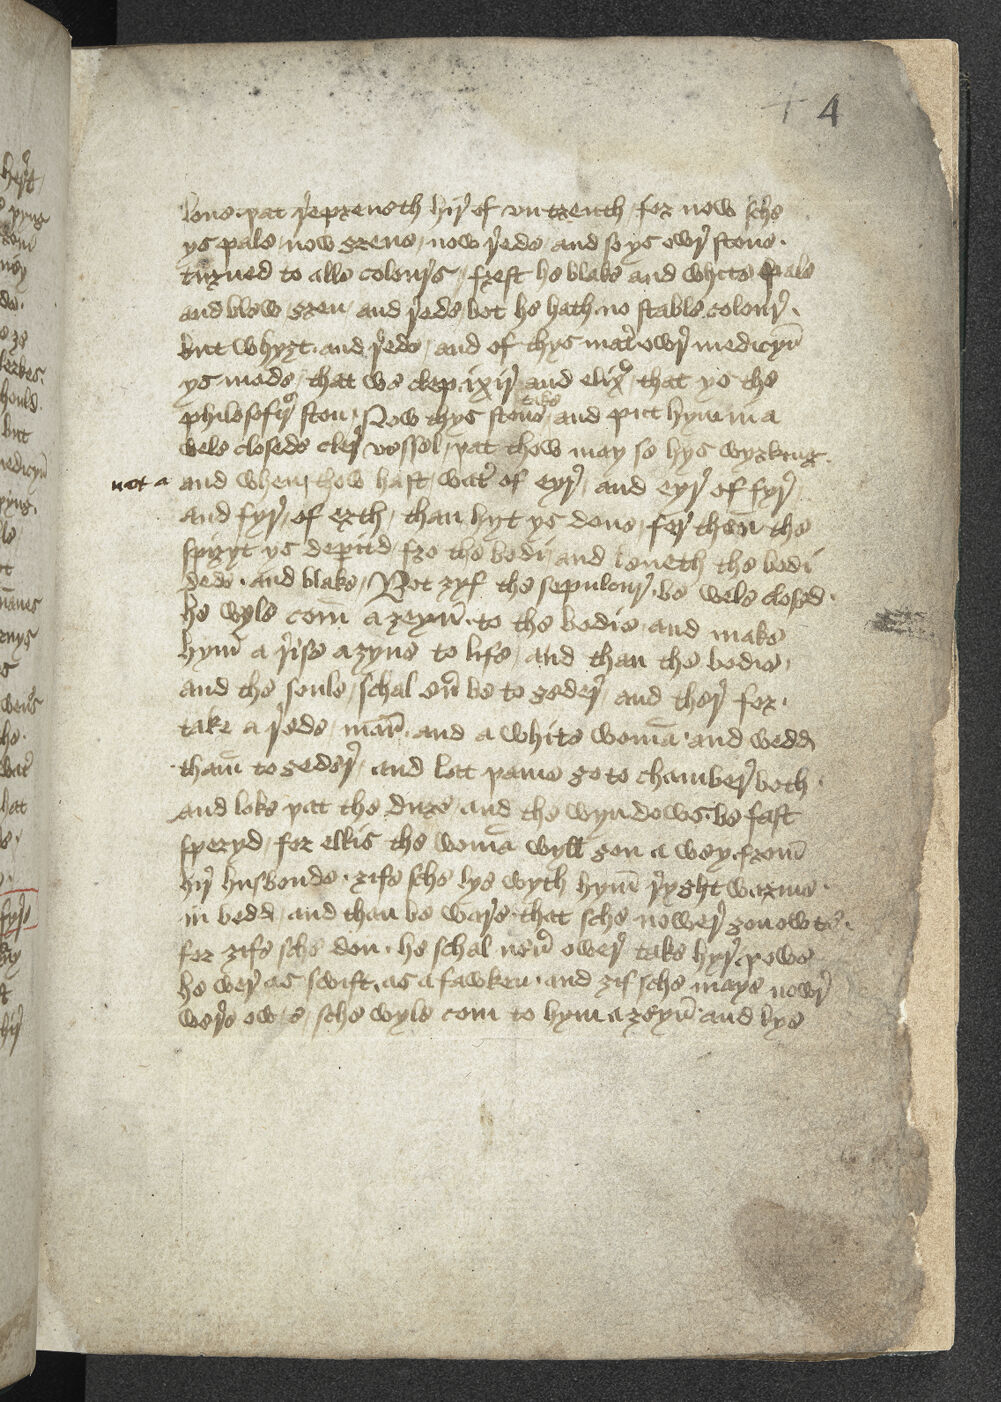 4
loue þat repreueth hir of vntreuth / for now sche
ys pale / now grene / now rede / and so ys owr stone .
turned to alle colours / frest he blake and white pale
and blew / gren / and rede bot he hath no stable colour .
but whyȝt . and rede / and of thys mater owr medicyn
ys made / that we clep ixir and elixer / that ys the
philosofyr ston / Now thys stone take and put hym in a
wele closede cler vessel / þat thow may se hys wyrkyng .
not a
and when thow hast / water of eyr / and eyr of fyr /
and fyr / of erth / than hyt ys done / for then the
spiryt ys depitd / fro the bodi / and leueth the bodi
dede . and blake / Bot ȝyf the sepulcur . be wele closed .
he wyle com a ȝeyn . to the bodie and make
hym a rise a ȝyne to life / and than the bodie /
and the soule / schal eur be to geder / and ther for .
take a rede / man . and a white woman and wedd
tham to geder / and lett þame go to chamber both .
and loke þat the dure / and the wyndows . be fast
speryd / for ellis the woman wyll gon a wey . from
hir husbonde . ȝife sche lye wyth hym ryght warme .
in bedd / and than be ware . that sche nower gon owte .
for ȝife sche don . he schal neuer ower take hyr . þowe
he wer as swift . as a fawken . and ȝif sche maye nowr
were owte / sche wyle com to hym a ȝeyn and lye